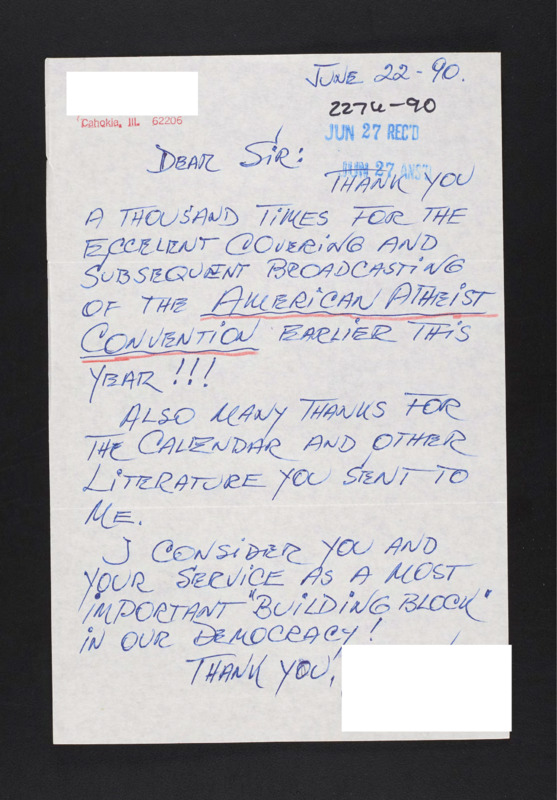 JUNE 22-90.
2274-90
Cahokia, Ill. 62206
JUN 27 REC'D
JUN 27 ANS'D
DEAR SIR:
THANK YOU
A THOUSAND TIMES FOR THE
EXCELENT COVERING AND
SUBSEQUENT BROADCASTING
OF THE AMERICAN ATHEIST
CONVENTION EARLIER THIS
YEAR!!!
ALSO MANY THANKS FOR
THE CALENDAR AND OTHER
LITERATURE YOU SENT TO
ME.
I CONSIDER YOU AND
YOUR SERVICE AS A MOST
IMPORTANT "BUILDING BLOCK"
IN OUR DEMOCRACY!
THANK YOU,